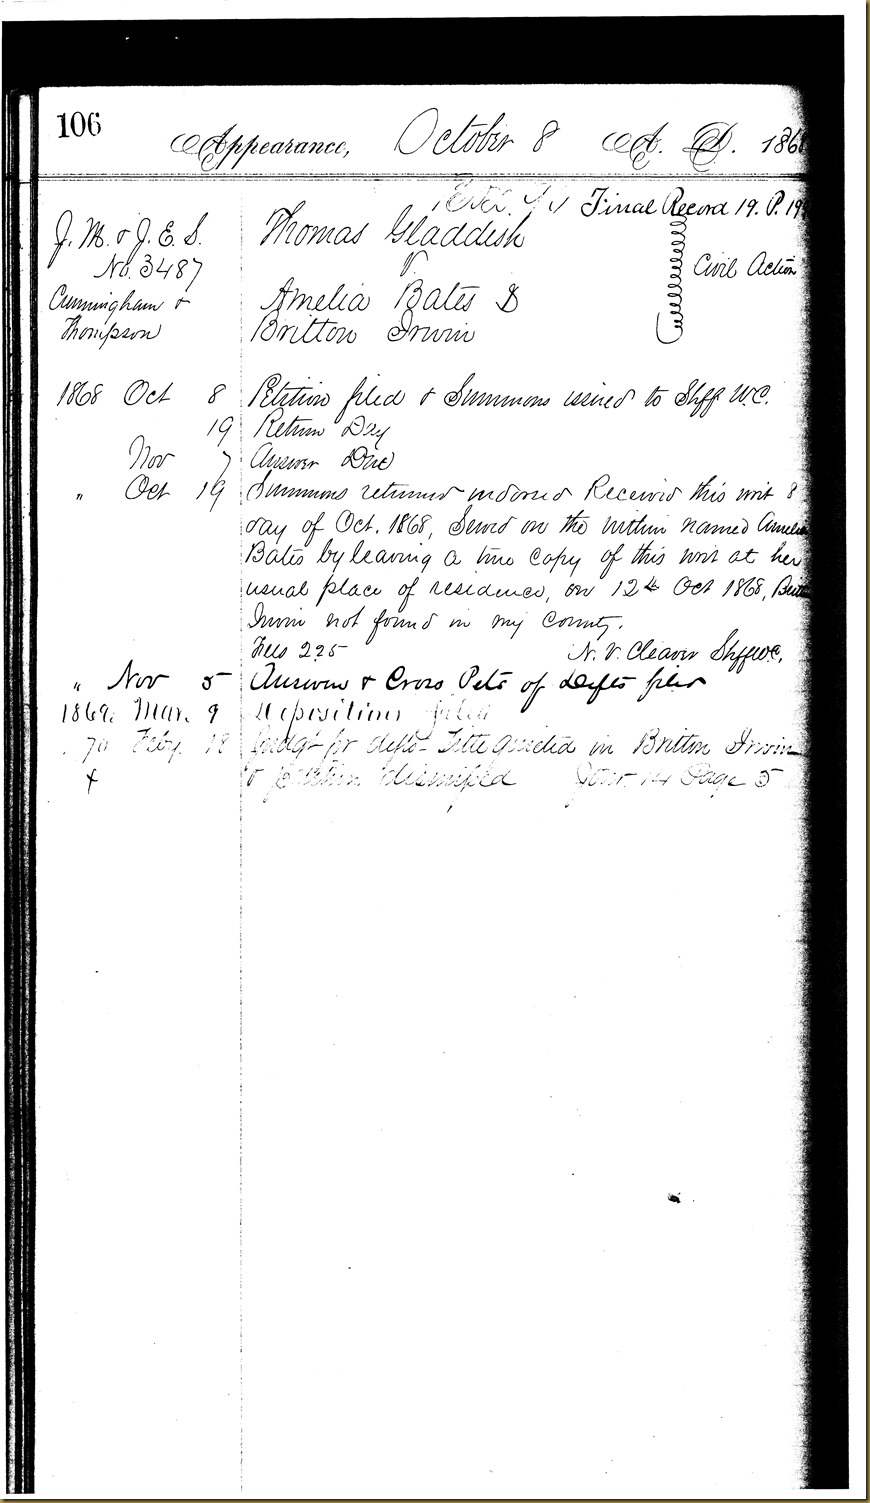 106
Appearance, October 8 A. D. 186
Final Record 19. P. 19
J. M. & J. E. S. Thomas Gladdish
No. 3487 v. Civil Action
Cunningham & Amelia Bates &
Thompson Britton Irwin
1868 Oct 8 Petition filed & Summons issued to Shff W.C.
19 Return Day
Nov 7 Answer Due
" Oct 19 Summons returned indorsed Received this writ 8
day of Oct. 1868, Served on the within named Amelia
Bates by leaving a true copy of this writ at her
usual place of residence, on 12th Oct 1868, Britt
Irwin not found in my County.
Fees 2.25 N. V. Cleaver Shff W.C.
" Nov 5 Answer & Cross Pets of Defts filed
1869 Mar. 9 Depositions filed
70 Feby. 18 Judgt for defts - Title quieted in Britton Irwin
& petition dismissed Jour. 14 Page 5